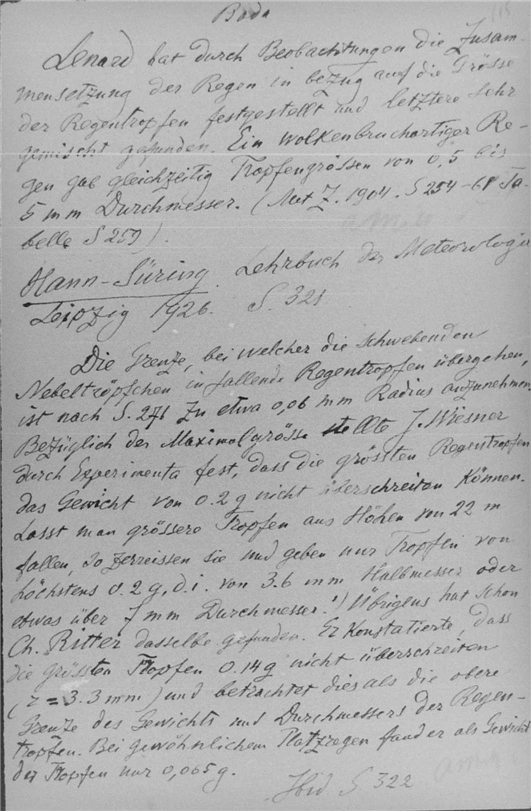 Lenard hat durch Beobachtungen die Zusam-
mensetzung der Regen in bezug auf die Grösse
der Regentropfen festgestellt und letztere sehr
gemischt gefunden. Ein wolkenbruchartiger Re-
gen gab gleichzeitig Tropfengrössen von 0,5 bis
5 mm Durchmesser. (Met Z. 1904. S 254-61 Ta
belle S 259).
Hann-Süring Lehrbuch der Meteorologie
Leipzig 1926. S. 321
Die Grenze, bei welcher die schwebenden
Nebeltröpfchen in fallende Regentropfen übergehen,
ist nach S. 271 zu etwa 0,06 mm Radius anzunehmen.
Bezüglich der Maximalgrösse stellte J. Wiesner
durch Experimente fest, dass die grössten Regentropfen
das Gewicht von 0.2 g nicht überschreiten können.
Lässt man grössere Tropfen aus Höhen von 22 m
fallen, so zerreissen sie und geben nur Tropfen von
höchstens 0.2 g, d.i. von 3.6 mm Halbmesser oder
etwas über 7 mm Durchmesser.¹) Übrigens hat schon
Ch. Ritter dasselbe gefunden. Er konstatierte, dass
die grössten Tropfen 0.14 g nicht überschreiten
(r = 3.3 mm) und betrachtet dies als die obere
Grenze des Gewichts und Durchmessers der Regen-
tropfen. Bei gewöhnlichem Platzregen fand er als Gewicht
der Tropfen nur 0,065 g.
Ibid S. 322